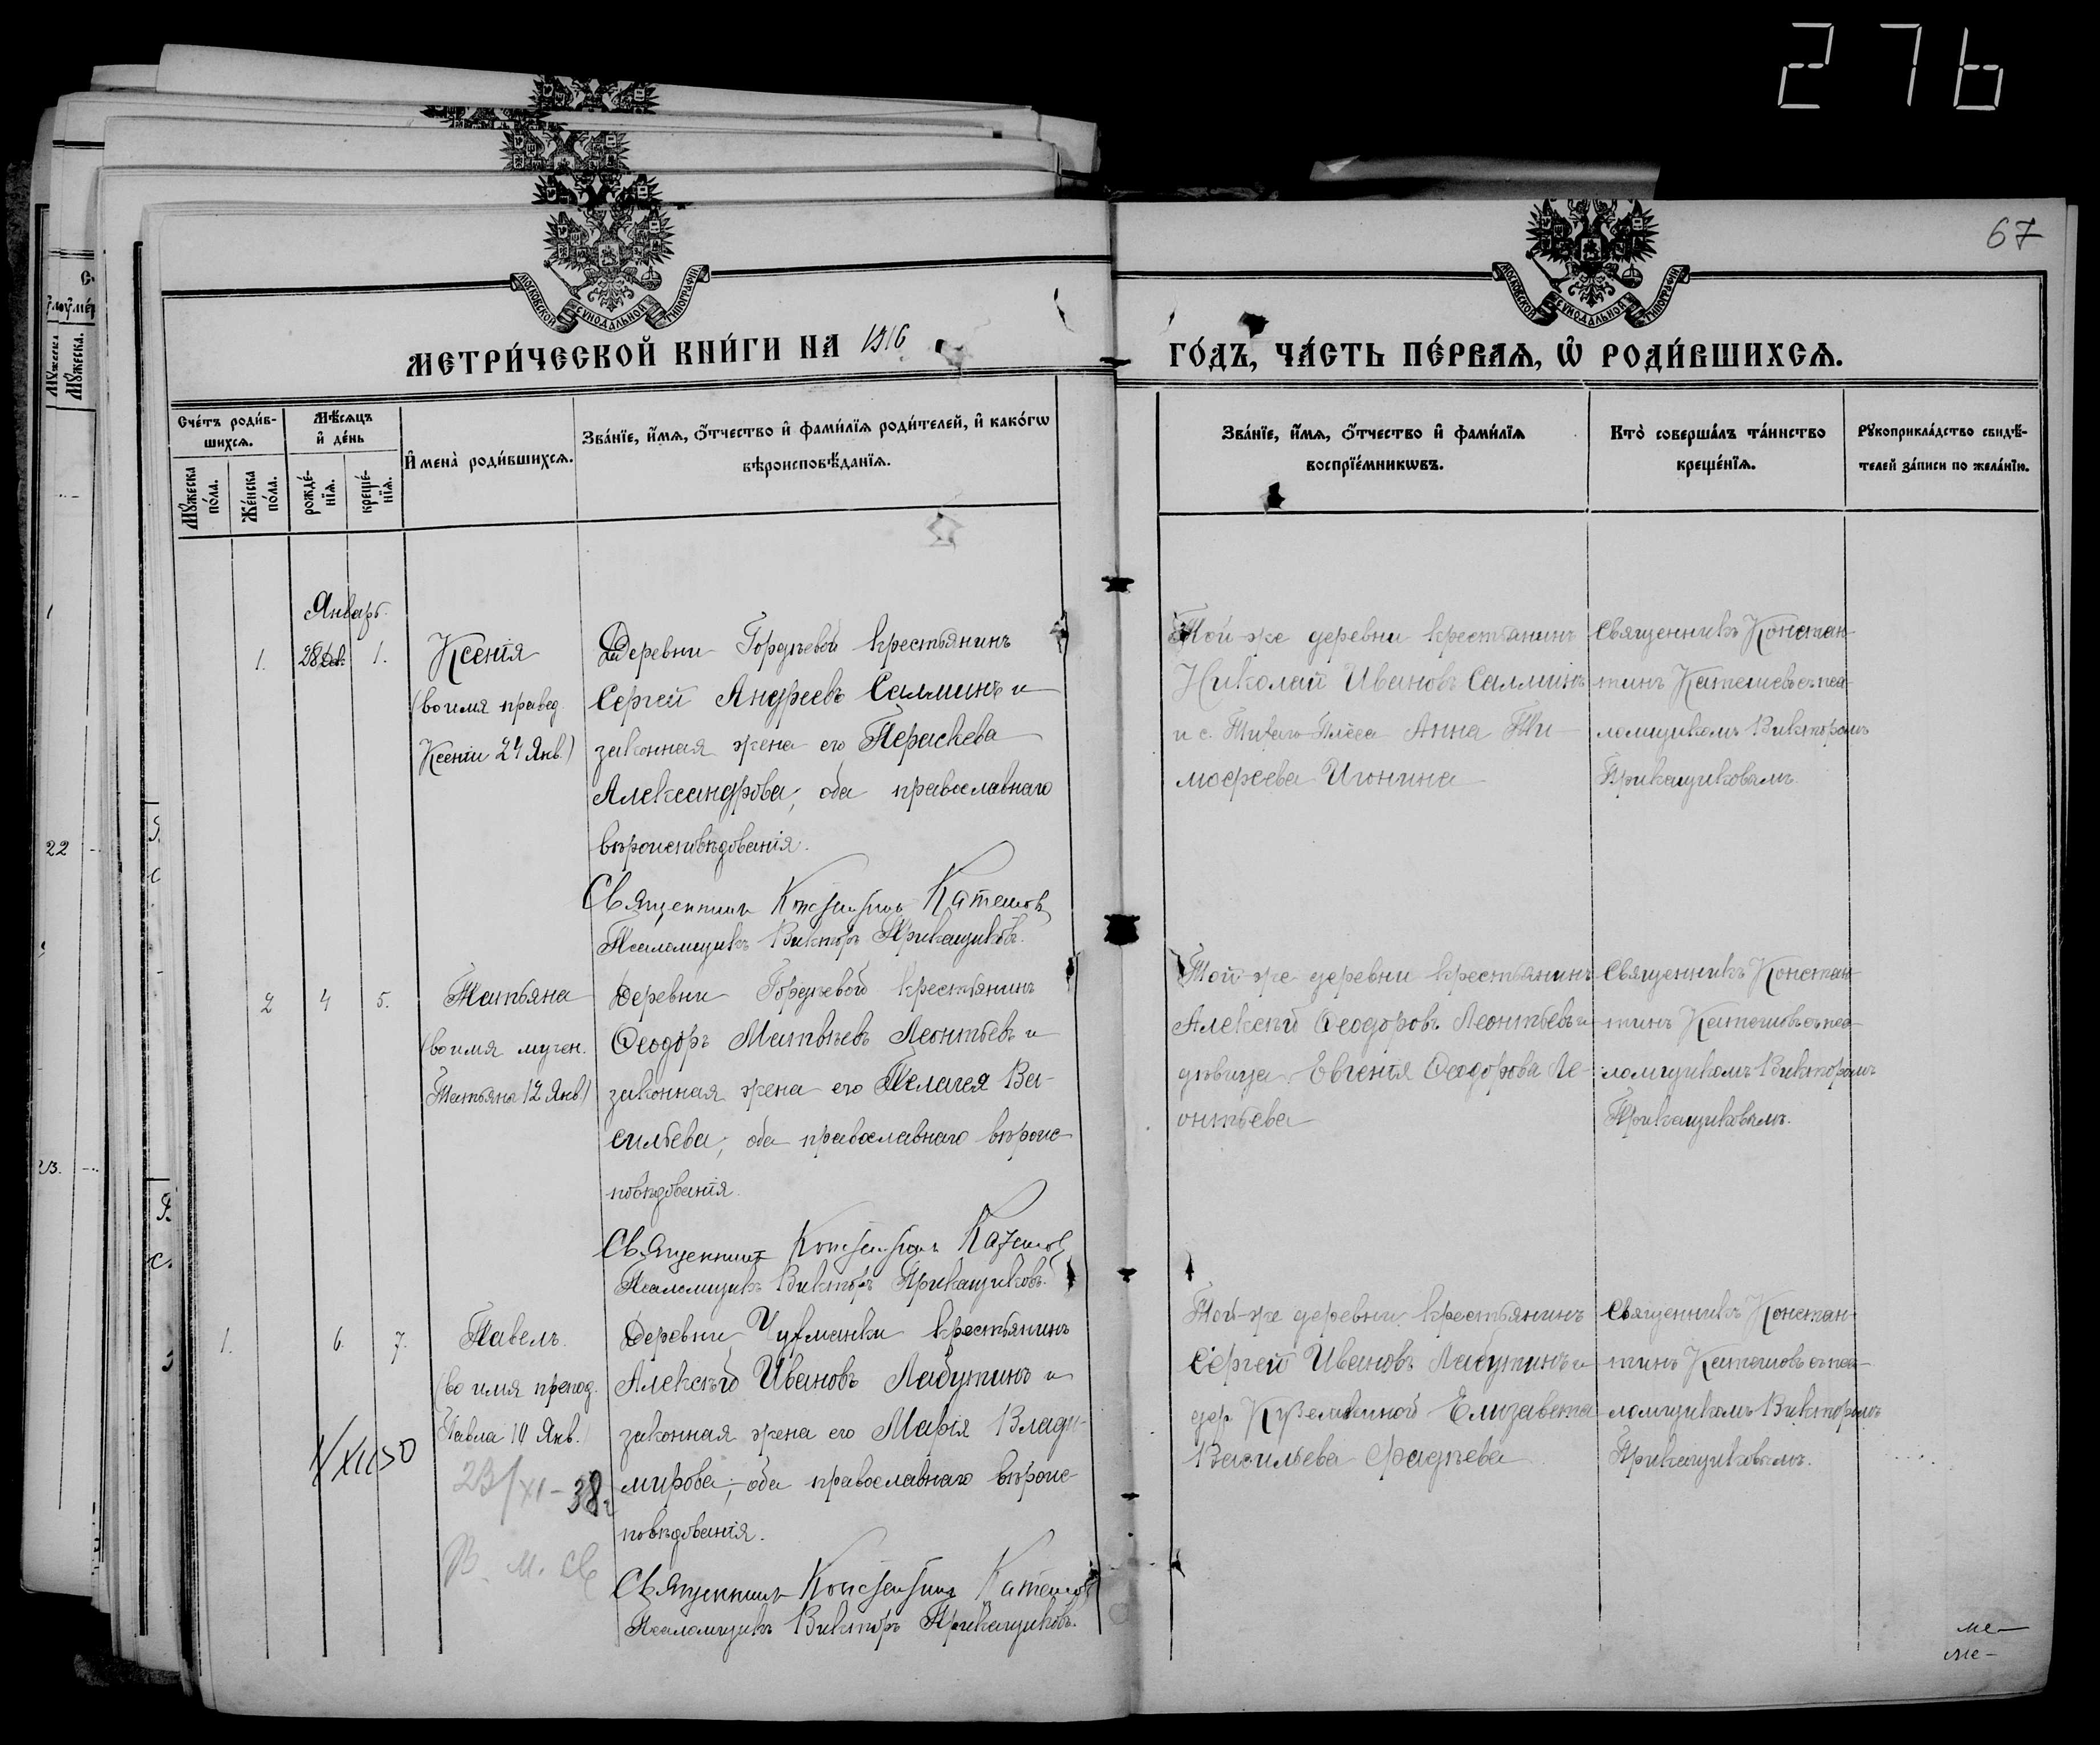 276
67
МОСКОВСКОЙ СѴНОДАЛЬНОЙ ТИПОГРАФІИ
МОСКОВСКОЙ СѴНОДАЛЬНОЙ ТИПОГРАФІИ
МЕТРИ́ЧЕСКОЙ КНИ́ГИ НА 1916
ГО́ДЪ, ЧА́СТЬ ПЕ́РВАЯ, Ѡ҆ РОДИ́ВШИХСЯ.
Сче́тъ роди́в-
шихся.
Мꙋ́жеска по́ла.
Же́нска по́ла.
Мѣ́сяцъ и҆ де́нь
рожде́-нїя.
креще́-нїя.
И҆мена̀ роди́вшихся.
Зва́нїе, и҆́мя, ѻ҆́тчество и҆ фами́лїя роди́телей, и҆ како́гѡ
вѣроисповѣ́данїя.
Зва́нїе, и҆́мя, ѻ҆́тчество и҆ фами́лїя
воспрїе́мникѡвъ.
Кто̀ соверша́лъ та́инство
креще́нїя.
Рꙋкоприкла́дство свидѣ́-
телей за́писи по жела́нїю.
Январь.
1. 28 Дек. 1. Ксенія
(во имя правед.
Ксеніи 24 Янв.)
Деревни Гордѣевой крестьянинъ
Сергей Андреевъ Салминъ и
законная жена его Параскева
Александрова, оба православнаго
вѣроисповѣдованія.
Священникъ Константинъ Катешовъ
Псаломщикъ Викторъ Прикащиковъ.
Той-же деревни крестьянинъ
Николай Ивановъ Салминъ
и с. Анна Ти-
мофеева Игонина
Священникъ Констан-
тинъ Катешовъ съ пса-
ломщикомъ Викторомъ
Прикащиковымъ.
2 4 5. Татьяна
(во имя мучен.
Татьяны 12 Янв.)
Деревни Гордѣевой крестьянинъ
Ѳеодоръ Матвѣевъ Леонтьевъ и
законная жена его Пелагея Ва-
сильева, оба православнаго вѣроис-
повѣдованія.
Священникъ Константинъ Катешовъ
Псаломщикъ Викторъ Прикащиковъ.
Той-же деревни крестьянинъ
Алексѣй Ѳеодоровъ Леонтьевъ и
дѣвица Евгенія Ѳеодорова Ле-
онтьева
Священникъ Констан-
тинъ Катешовъ съ пса-
ломщикомъ Викторомъ
Прикащиковымъ.
1. 6. 7. Павелъ.
(во имя препод.
Павла 10 Янв.)
23/XI-38г.
Деревни Чурманки крестьянинъ
Алексѣй Ивановъ Лабутинъ и
законная жена его Марія Влади-
мирова, оба православнаго вѣроис-
повѣдованія.
Священникъ Константинъ Катешовъ
Псаломщикъ Викторъ Прикащиковъ.
Той-же деревни крестьянинъ
Сергей Ивановъ Лабутинъ и
дер. Елизавета
Васильева Фадѣева
Священникъ Констан-
тинъ Катешовъ съ пса-
ломщикомъ Викторомъ
Прикащиковымъ.
22
23.